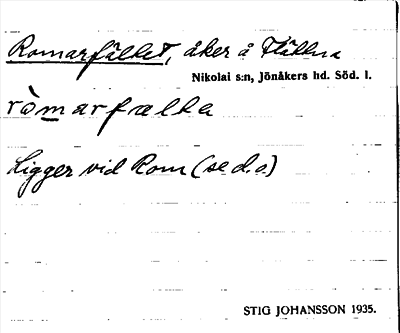 Romarfältet, åker å Flättna
Nikolai s:n, Jönåkers hd. Söd. l.
ròmarfælta
Ligger vid Rom (se d.o.)
STIG JOHANSSON 1935.